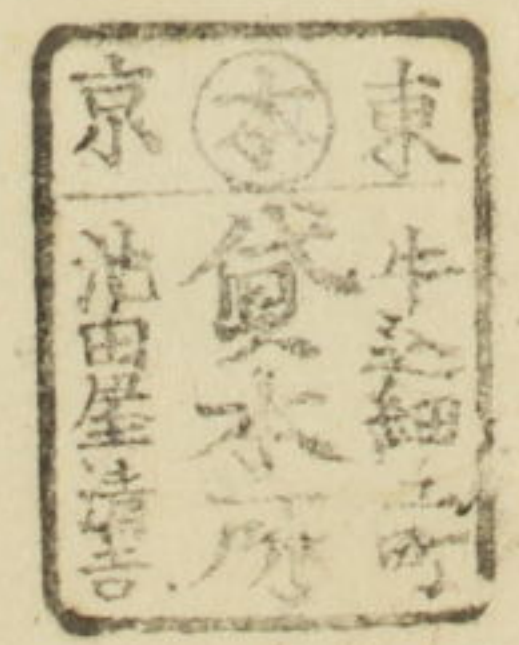 東京
牛込細工町
貸本所
池田屋清吉